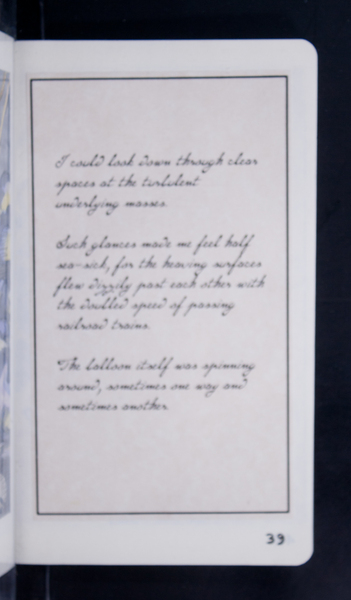 I could look down through clear
spaces at the turbulent
underlying masses.
Such glances made me feel half
sea-sick, for the heaving surfaces
flew dizzily past each other with
the doubled speed of passing
railroad trains.
The balloon itself was spinning
around, sometimes one way and
sometimes another.
39